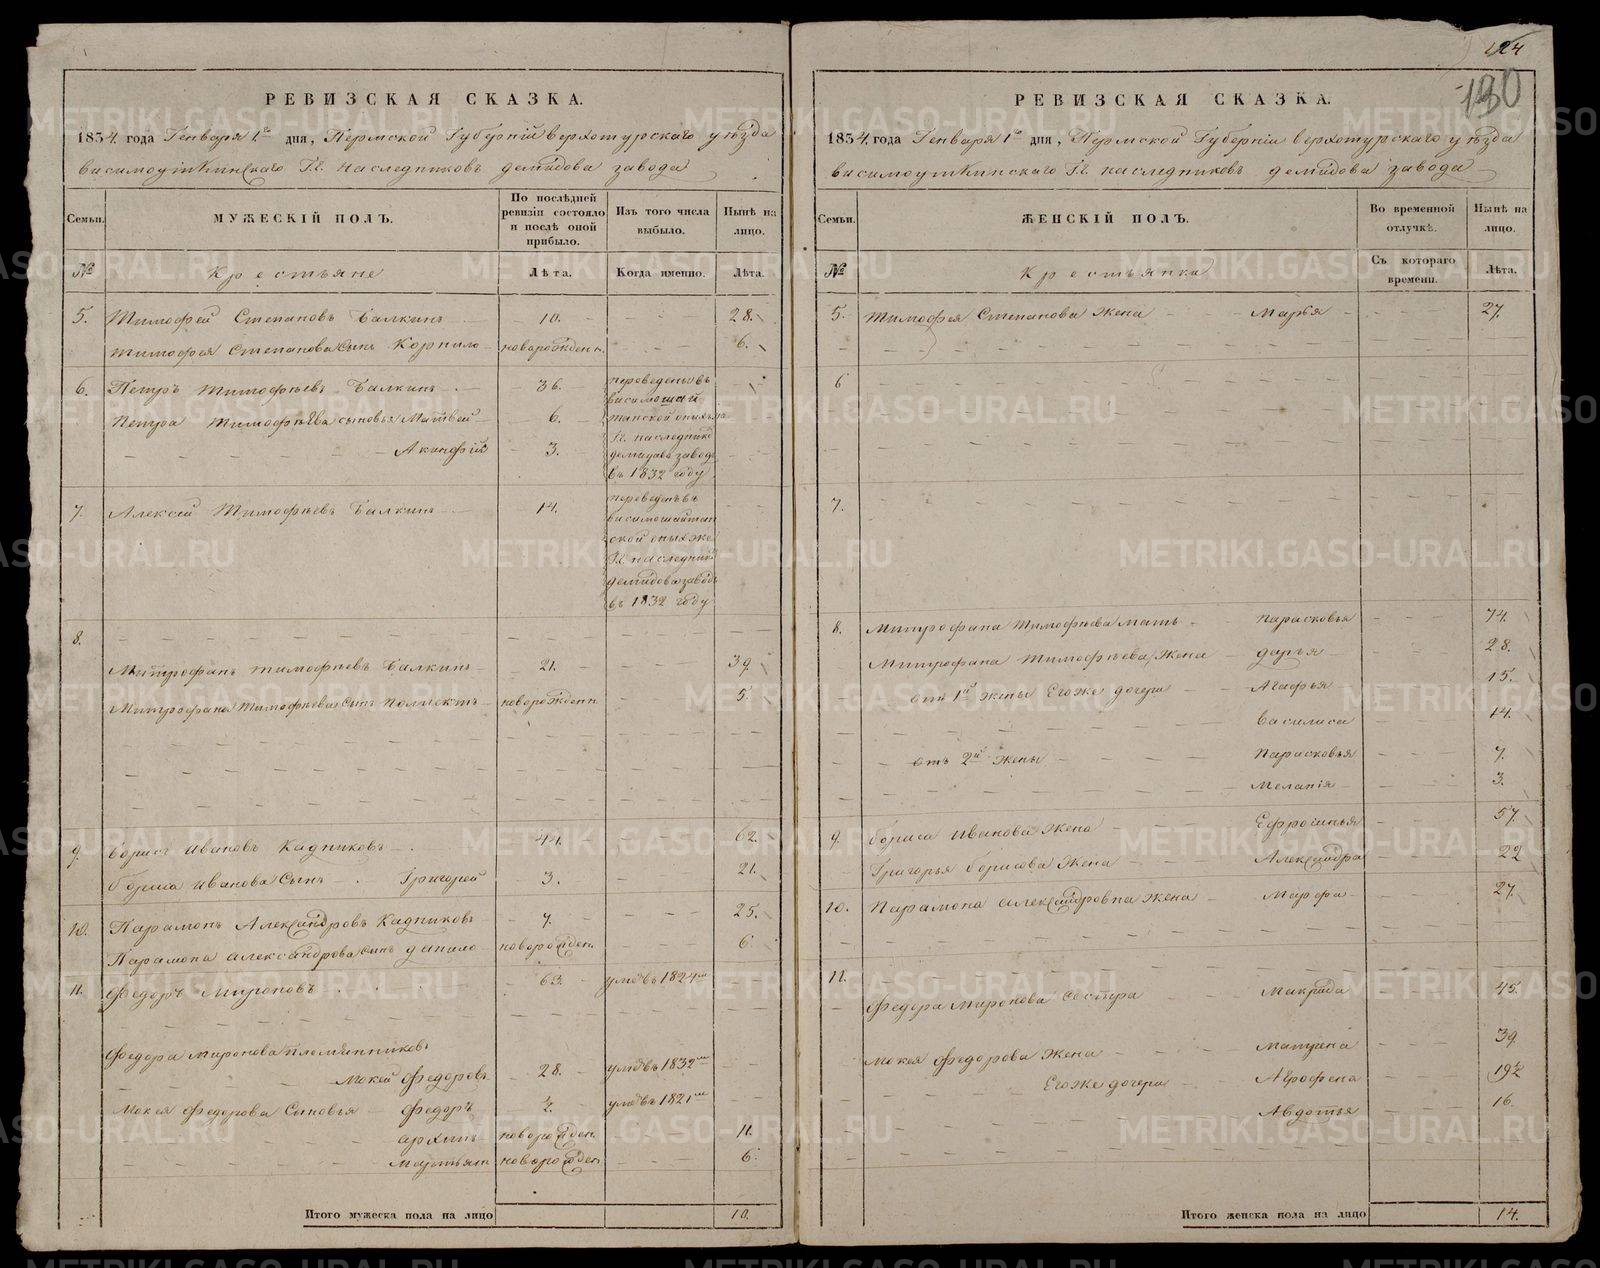 РЕВИЗСКАЯ СКАЗКА.
1834. года Генваря 1го дня, Пермской Губерніи верхотурскаго уѣзда
висимоуткинскаго Г.г. наследниковъ демидова завода
Семьи. МУЖЕСКІЙ ПОЛЪ. По послѣдней ревизіи состояло и послѣ оной прибыло. Изъ того числа выбыло. Нынѣ на лицо.
№ Крестьяне Лѣта. Когда именно. Лѣта.
5. Тимофей Степановъ Балкинъ 10. 28.
Тимофея Степанова сынъ Корнило новорожден. 6.
6. Петръ Тимофѣевъ Балкинъ 36. переведены въ
Петра Тимофѣева сыновья Матвей 6.
Акинфій 3.
въ 1832 году
7. Алексей Тимофѣевъ Балкинъ 14. переведенъ въ
висимошайтан
ской оныхже
Г.г. наследник
демидова завод
въ 1832 году
8.
Митрофанъ тимофѣевъ Балкинъ 21. 39
Митрофана Тимофѣева сынъ новорожден 5.
9. Борисъ Ивановъ Кадниковъ 44. 62.
Бориса Иванова Сынъ Григорей 3. 21.
10. Парамонъ Александровъ Кадниковъ 7. 25.
Парамона александрова сынъ данило новорожден. 6.
11. Федоръ Мироновъ 63. умре въ 1824м
Федора миронова племянниковъ
Мокей федоровъ 28. умре въ 1832м
Мокея федорова Сыновья федоръ 1/2. умре въ 1821м
архипъ новорожден. 11.
новорожден 6.
Итого мужеска пола на лицо 10.
124
130
РЕВИЗСКАЯ СКАЗКА.
1834. года Генваря 1го дня, Пермской Губерніи верхотурскаго уѣзда
висимоуткинскаго Г.г. наследниковъ демидова завода
Семьи. ЖЕНСКІЙ ПОЛЪ. Во временной отлучкѣ. Нынѣ на лицо.
№ Крестьянки Съ котораго времени. Лѣта.
5. Тимофея Степанова жена Марья 27.
6
7.
8. Митрофана тимофѣева мать парасковья 74.
Митрофана Тимофѣева жена дарья 28.
отъ 1й жены Егоже дочери Агафья 15.
василиса 14.
отъ 2й жены Парасковья 7.
Меланія 3.
9. бориса иванова жена Ефросинья 57.
Григорья борисова жена Александра 22
10. Парамона александровича жена Марфа 27.
11.
Федора Миронова сестра Макрида 45.
Мокея федорова жена Матрена 39
Егоже дочери Агрофена 19 1/2
Авдотья 16.
Итого женска пола на лицо 14.
METRIKI.GASO-URAL.RU